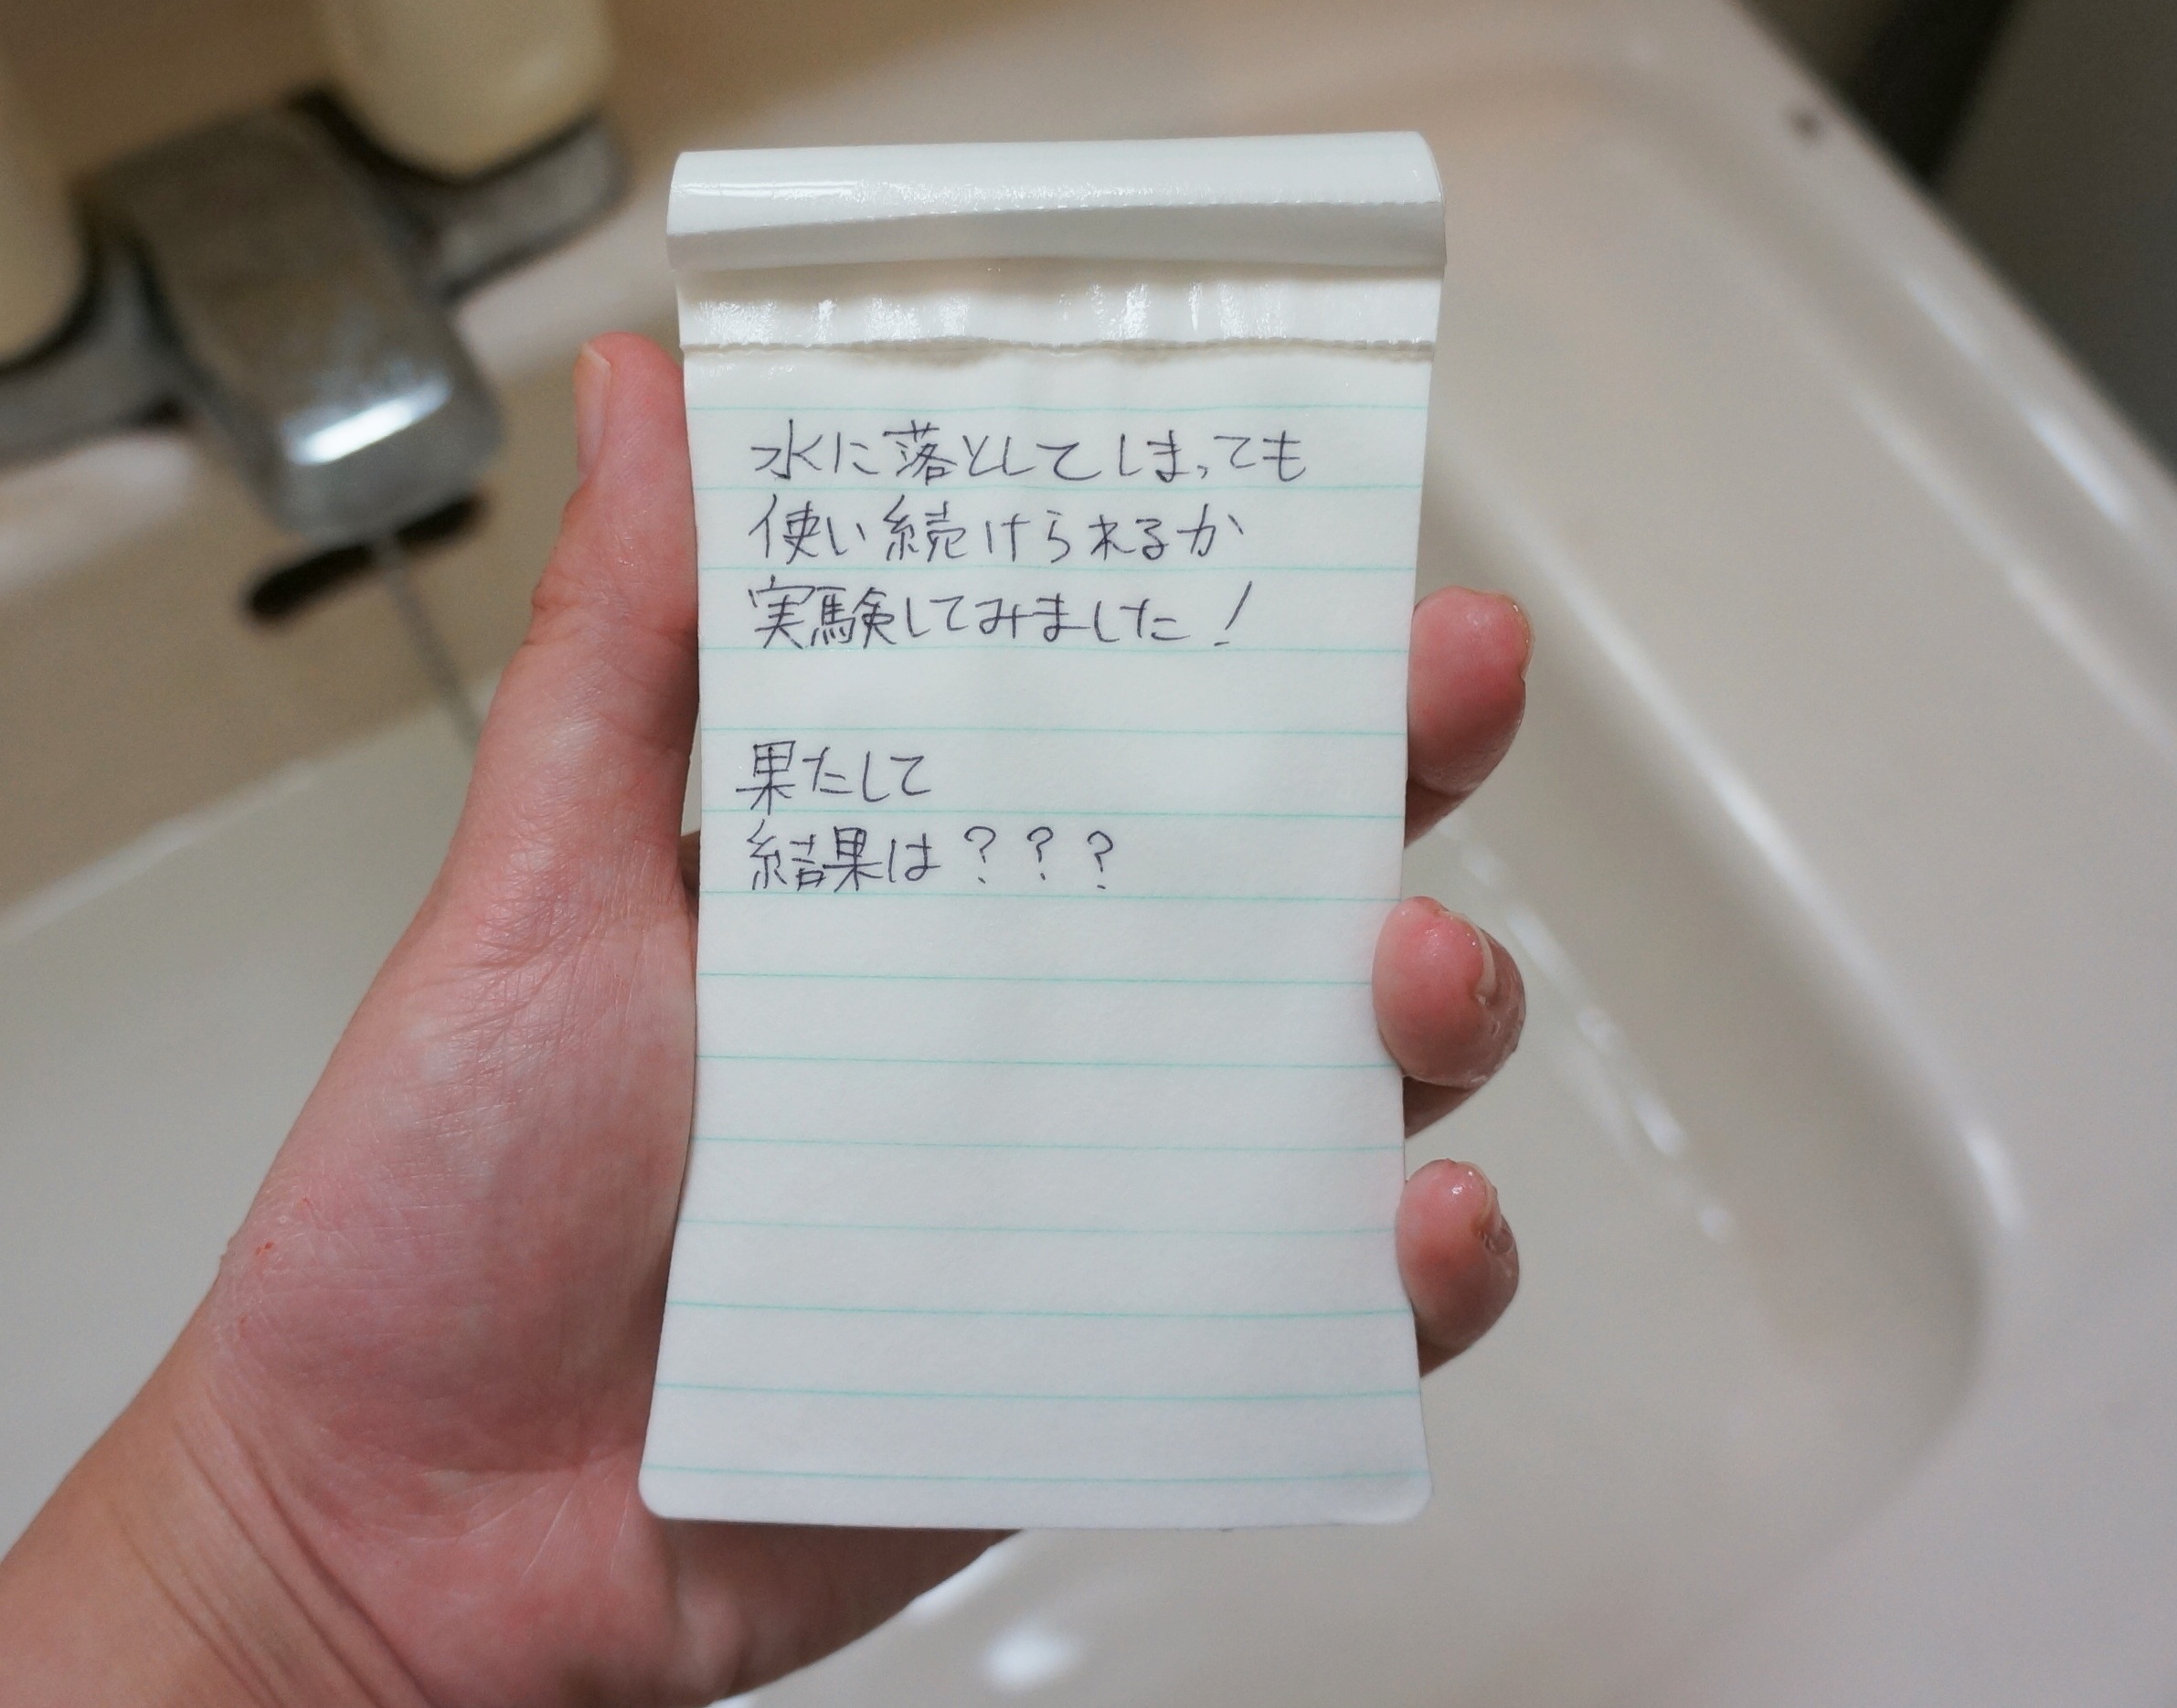 水に落としてしまっても
使い続けられるか
実験してみました!
果たして
結果は???